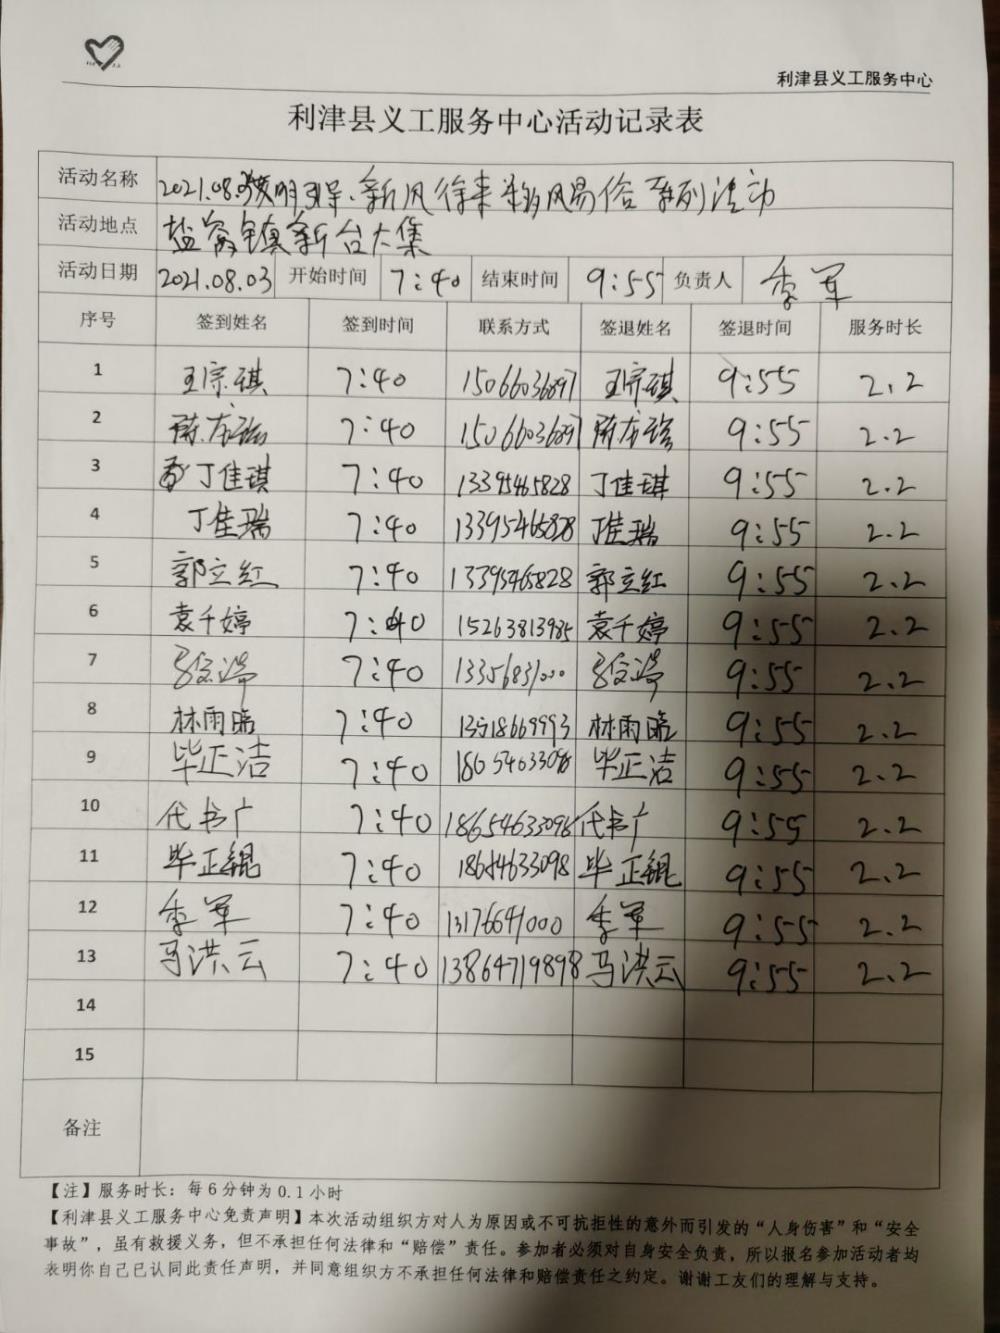 利津县义工服务中心
利津县义工服务中心活动记录表
活动名称 2021.08.03文明引导、新风徐来 移风易俗系列活动
活动地点 盐窝镇新台大集
活动日期 2021.08.03 开始时间 7:40 结束时间 9:55 负责人 季军
序号 签到姓名 签到时间 联系方式 签退姓名 签退时间 服务时长
1 王宗琪 7:40 15066036897 王宗琪 9:55 2.2
2 7:40 15066036897 9:55 2.2
3 丁佳琪 7:40 13395465828 丁佳琪 9:55 2.2
4 丁佳瑞 7:40 13395465828 丁佳瑞 9:55 2.2
5 郭立红 7:40 13395465828 郭立红 9:55 2.2
6 袁千婷 7:40 15263813985 袁千婷 9:55 2.2
7 7:40 13356831000 9:55 2.2
8 林雨 7:40 林雨 9:55 2.2
9 毕正洁 7:40 18654633098 毕正洁 9:55 2.2
10 代书广 7:40 18654633098 代书广 9:55 2.2
11 毕正锟 7:40 18654633098 毕正锟 9:55 2.2
12 季军 7:40 13176641000 季军 9:55 2.2
13 马洪云 7:40 13864719898 马洪云 9:55 2.2
14
15
备注
【注】服务时长：每6分钟为0.1小时
【利津县义工服务中心免责声明】本次活动组织方对人为原因或不可抗拒性的意外而引发的“人身伤害”和“安全
事故”，虽有救援义务，但不承担任何法律和“赔偿”责任。参加者必须对自身安全负责，所以报名参加活动者均
表明你自己已认同此责任声明，并同意组织方不承担任何法律和赔偿责任之约定。谢谢工友们的理解与支持。